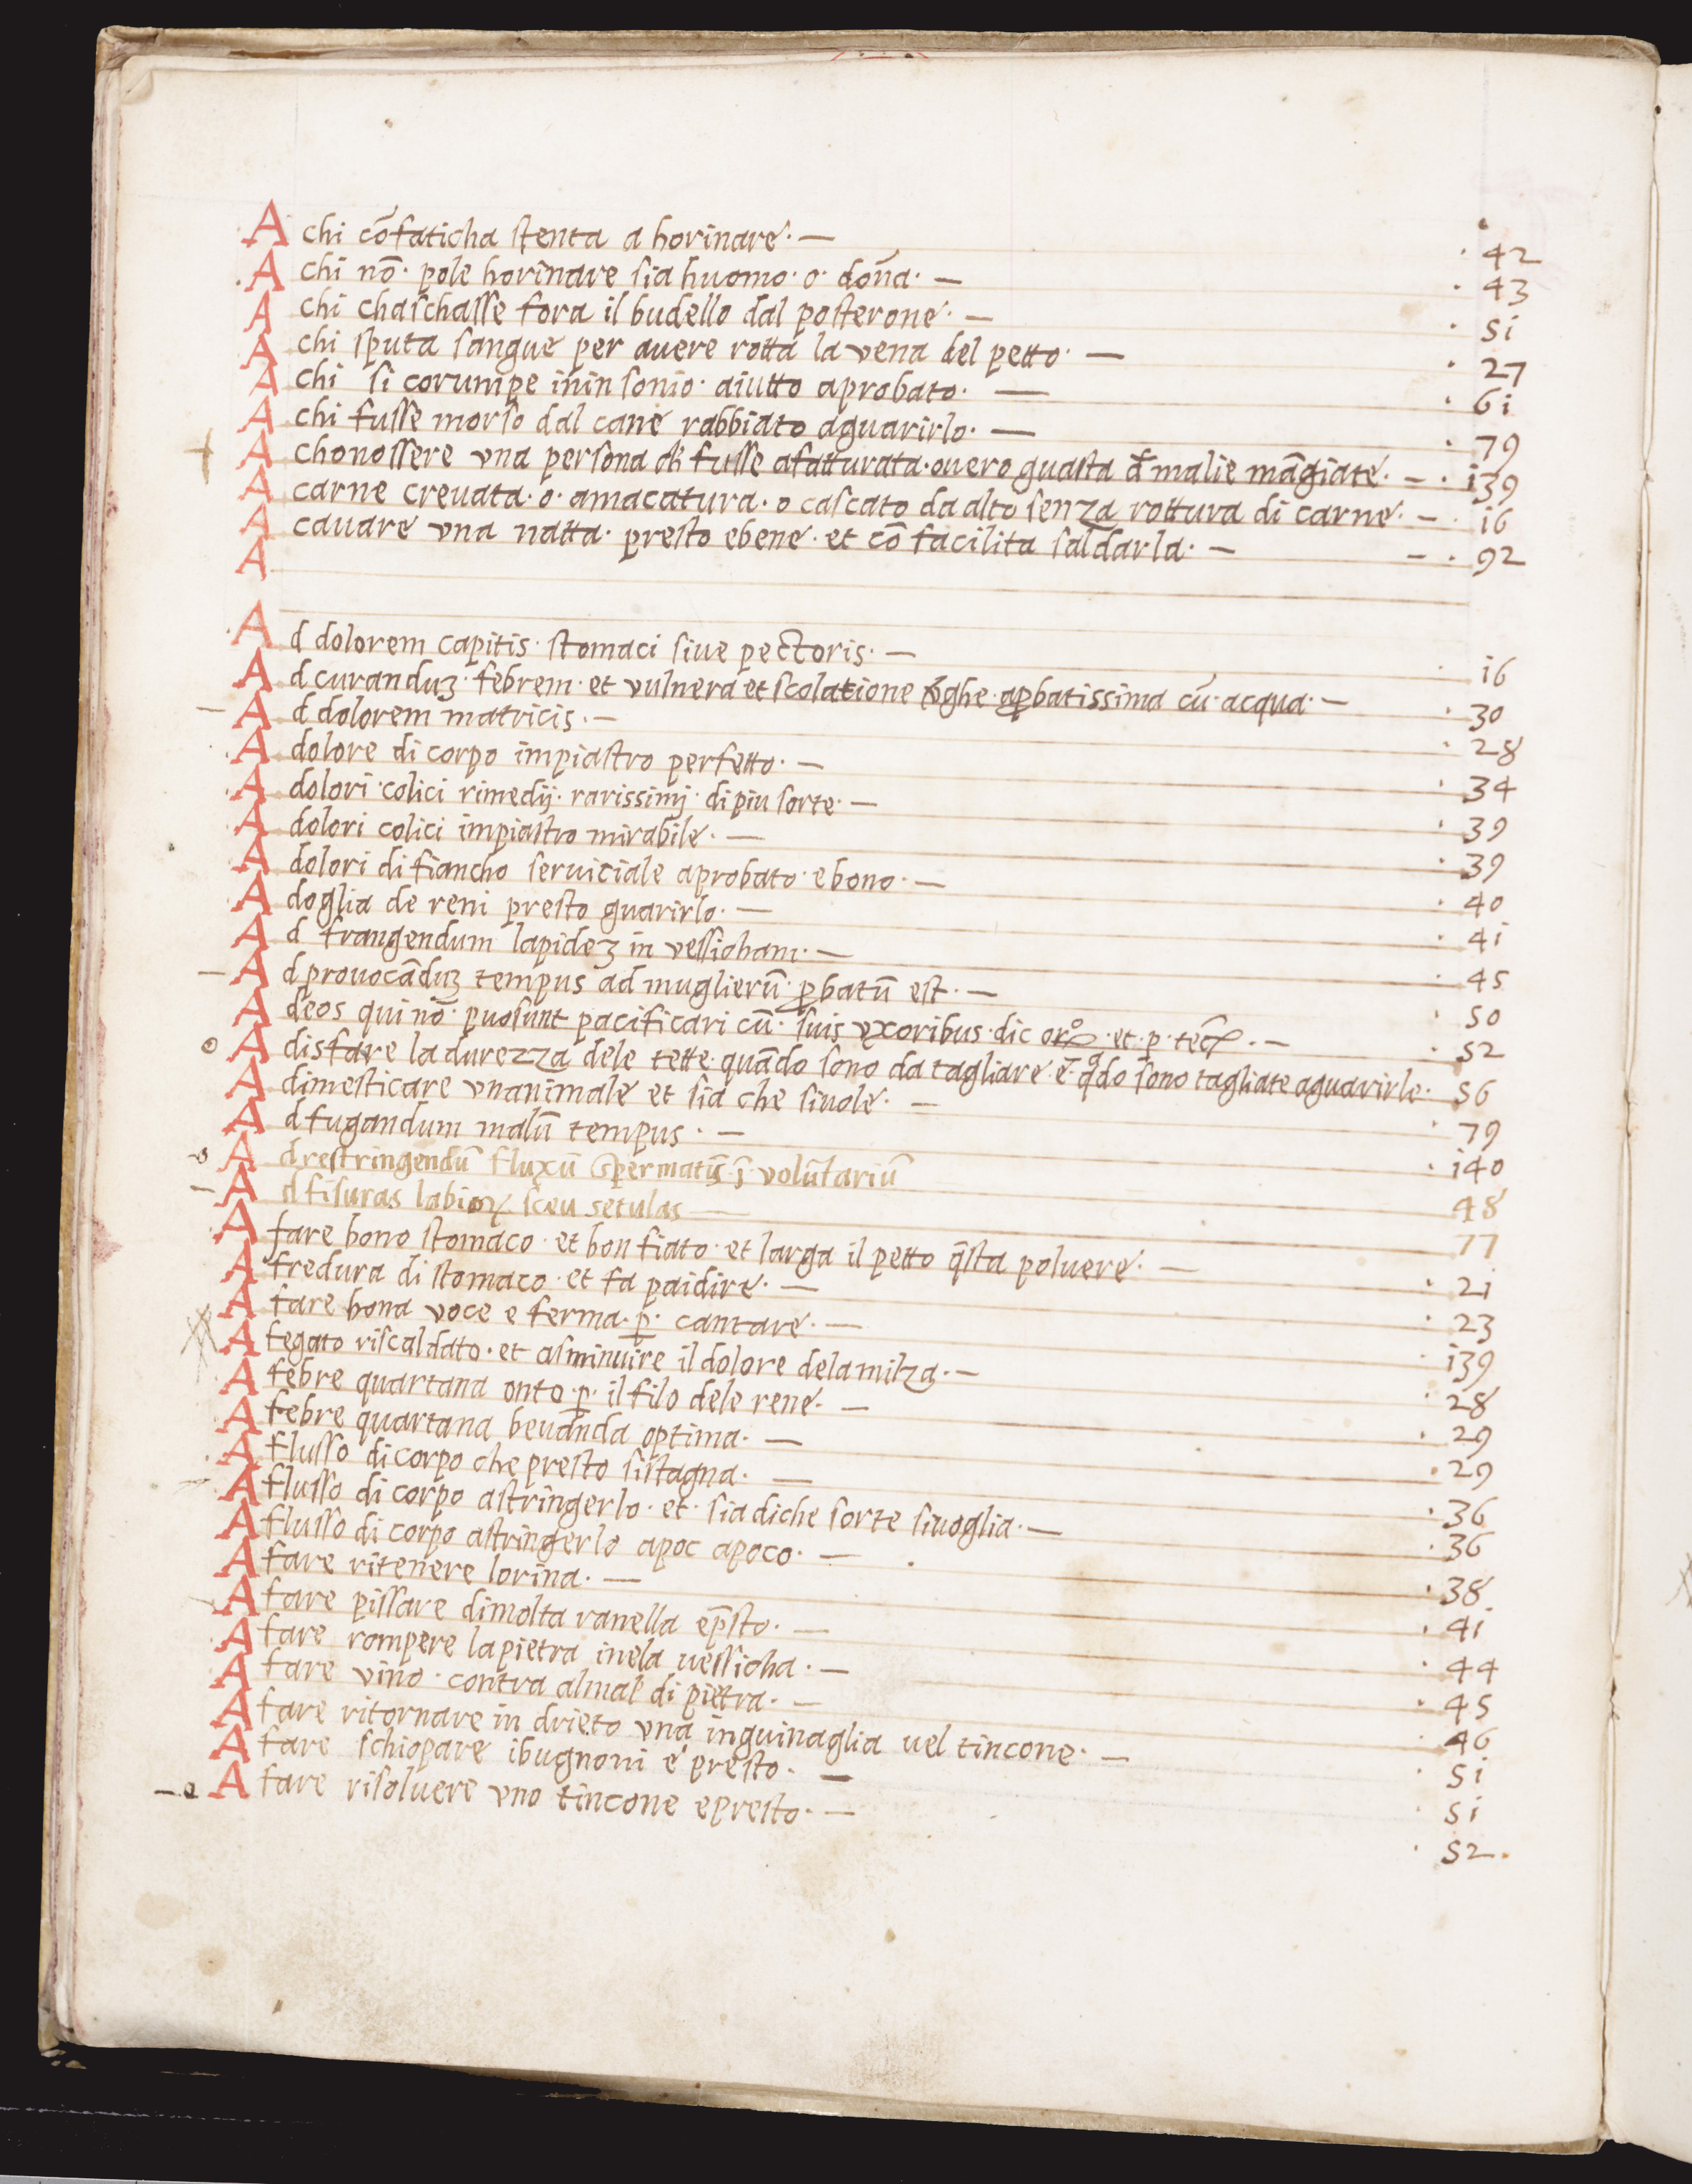 A chi cō faticha stenta a horinare · — · 42
A chi nō · pole horinare sia huomo · o · dōna · — · 43
A chi chaschasse fora il budello dal posterone · — · 5i
A chi sputa sangue per auere rotta la vena del petto · — · 27
A chi si corumpe inin sonio · aiutto aprobato · — · 6i
A chi fusse morso dal cane rabbiato aguarirlo · — · 79
A chonossere vna persona fusse afatturata · ouero guasta malie māgiate · — · i39
A carne creuata · o · amacatura · o cascato da alto senza rottura di carne · — · i6
A cauare vna natta · presto ebene · et cō facilita saldar·la · — — · 92
A
A d dolorem capitis · stomaci siue pectoris · — · i6
A d curanduʒ · febrem · et vulnera et scolatione ꝓbatissima cū · acqua · — · 30
A d dolorem matricis · — · 28
A dolore di corpo impiastro perfetto · — · 34
A dolori colici rimedij · rarissimj · di piu sorte · — · 39
A dolori colici impiastro mirabile · — · 39
A dolori di fiancho seruiciale aprobato · e bono · — · 40
A doglia de reni presto guarirlo · — · 4i
A d frangendum lapideʒ in vessicham · — · 45
A d prouocāduʒ tempus ad muglierū · ꝓbatū est · — · 50
A deos qui nō · puosunt pacificari cū · suis vxoribus · dic · et · p · — · 52
A disfare la durezza dele tette · quādo sono da tagliare · e · qādo sono tagliate aguarirle · 56
A dimesticare vnanimale et sia che siuole · — · 79
A d fugandum malū tempus · — · i40
A d restringendū fluxū spermatū · ī · volūtariū 48
A d fisuras labioꝝ sceu setulas — 77
A fare bono stomaco · et bon fiato · et larga il petto q̄sta poluere · — · 2i
A fredura di stomaco · et fa paidire · — · 23
A fare bona voce e ferma · ꝑ · cantare · — · i39
A fegato riscaldato · et asminuire il dolore dela milza · — · 28
A febre quartana onto · ꝑ · il filo dele rene · — · 29
A febre quartana beuanda optima · — · 29
A flusso di corpo che presto sistagna · — · 36
A flusso di corpo astringerlo · et · sia di che sorte siuoglia · — · 36
A flusso di corpo astringerlo apoc apoco · — · 38
A fare ritenere lorina · — · 4i
A fare pissare dimolta ranella ep̄sto · — · 44
A fare rompere la pietra inela uessicha · — · 45
A fare vino · contra almal di pietra · — · 46
A fare ritornare in drieto vna inguinaglia uel tincone · — · 5i
A fare schiopare ibugnoni e presto · — · 5i
A fare risoluere vno tincone epresto · — · 52 ·